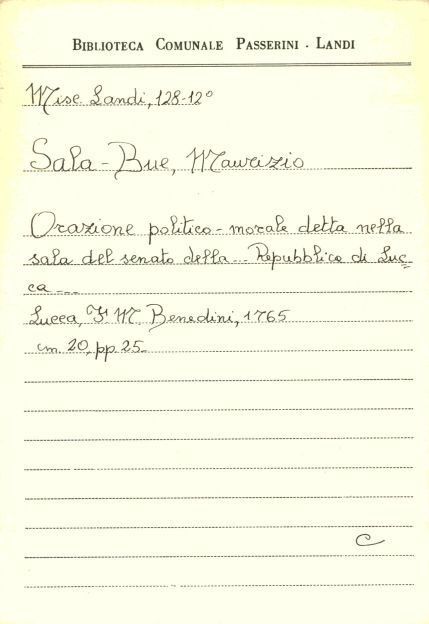 BIBLIOTECA COMUNALE PASSERINI - LANDI
Misc Landi, 128-12°
Sala - Bue, Maurizio
Orazione politico - morale detta nella
sala del senato della ... Repubblica di Luc=
ca ...
Lucca, F. M. Benedini, 1765
cm. 20, pp 25.
C